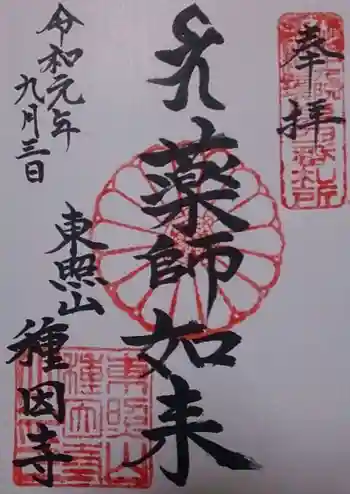 奉拝
薬師如来
令和元年
九月三日
東照山
種因寺
東照山
種因寺